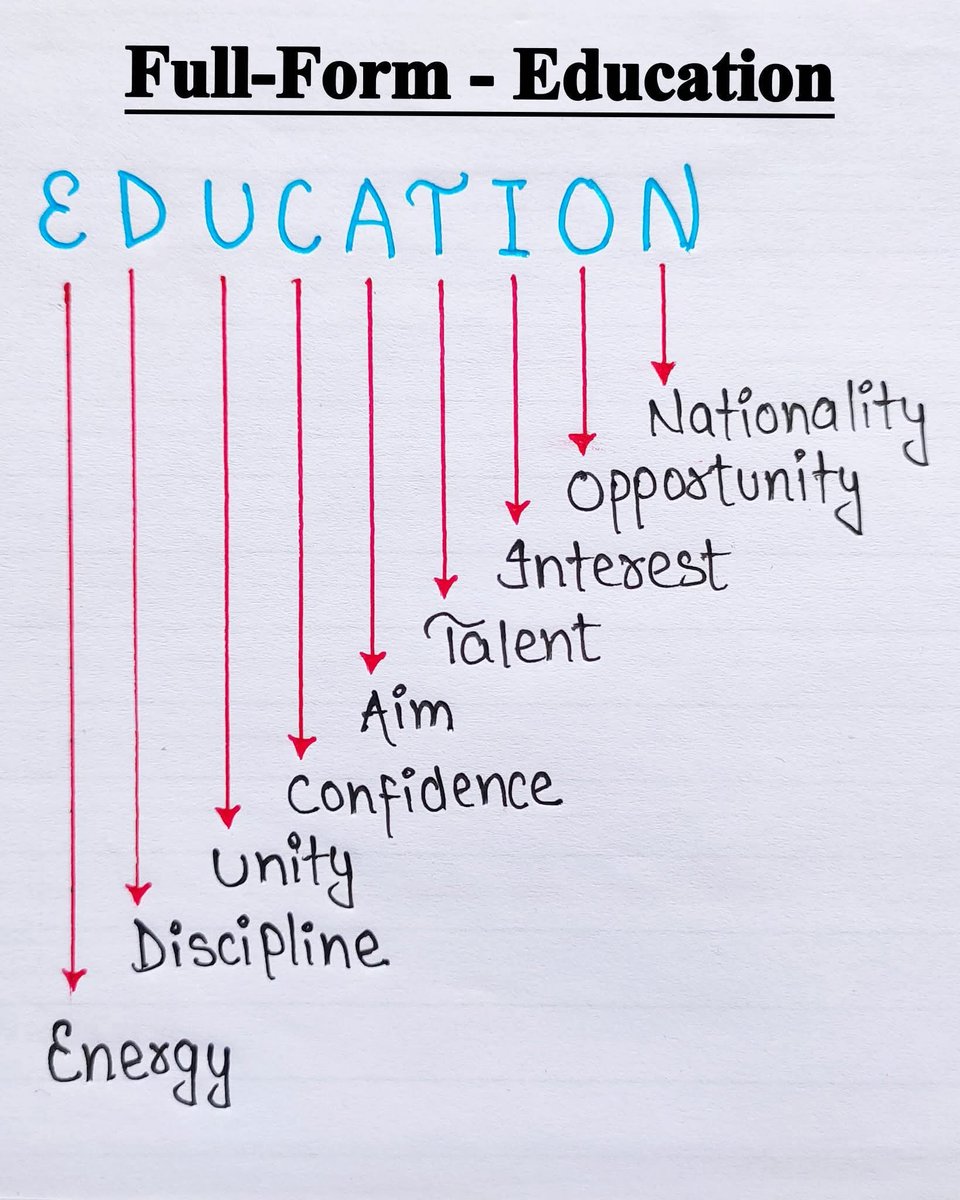 Full-Form - Education
EDUCATION
Nationality
Opportunity
Interest
Talent
Aim
Confidence
Unity
Discipline
Energy